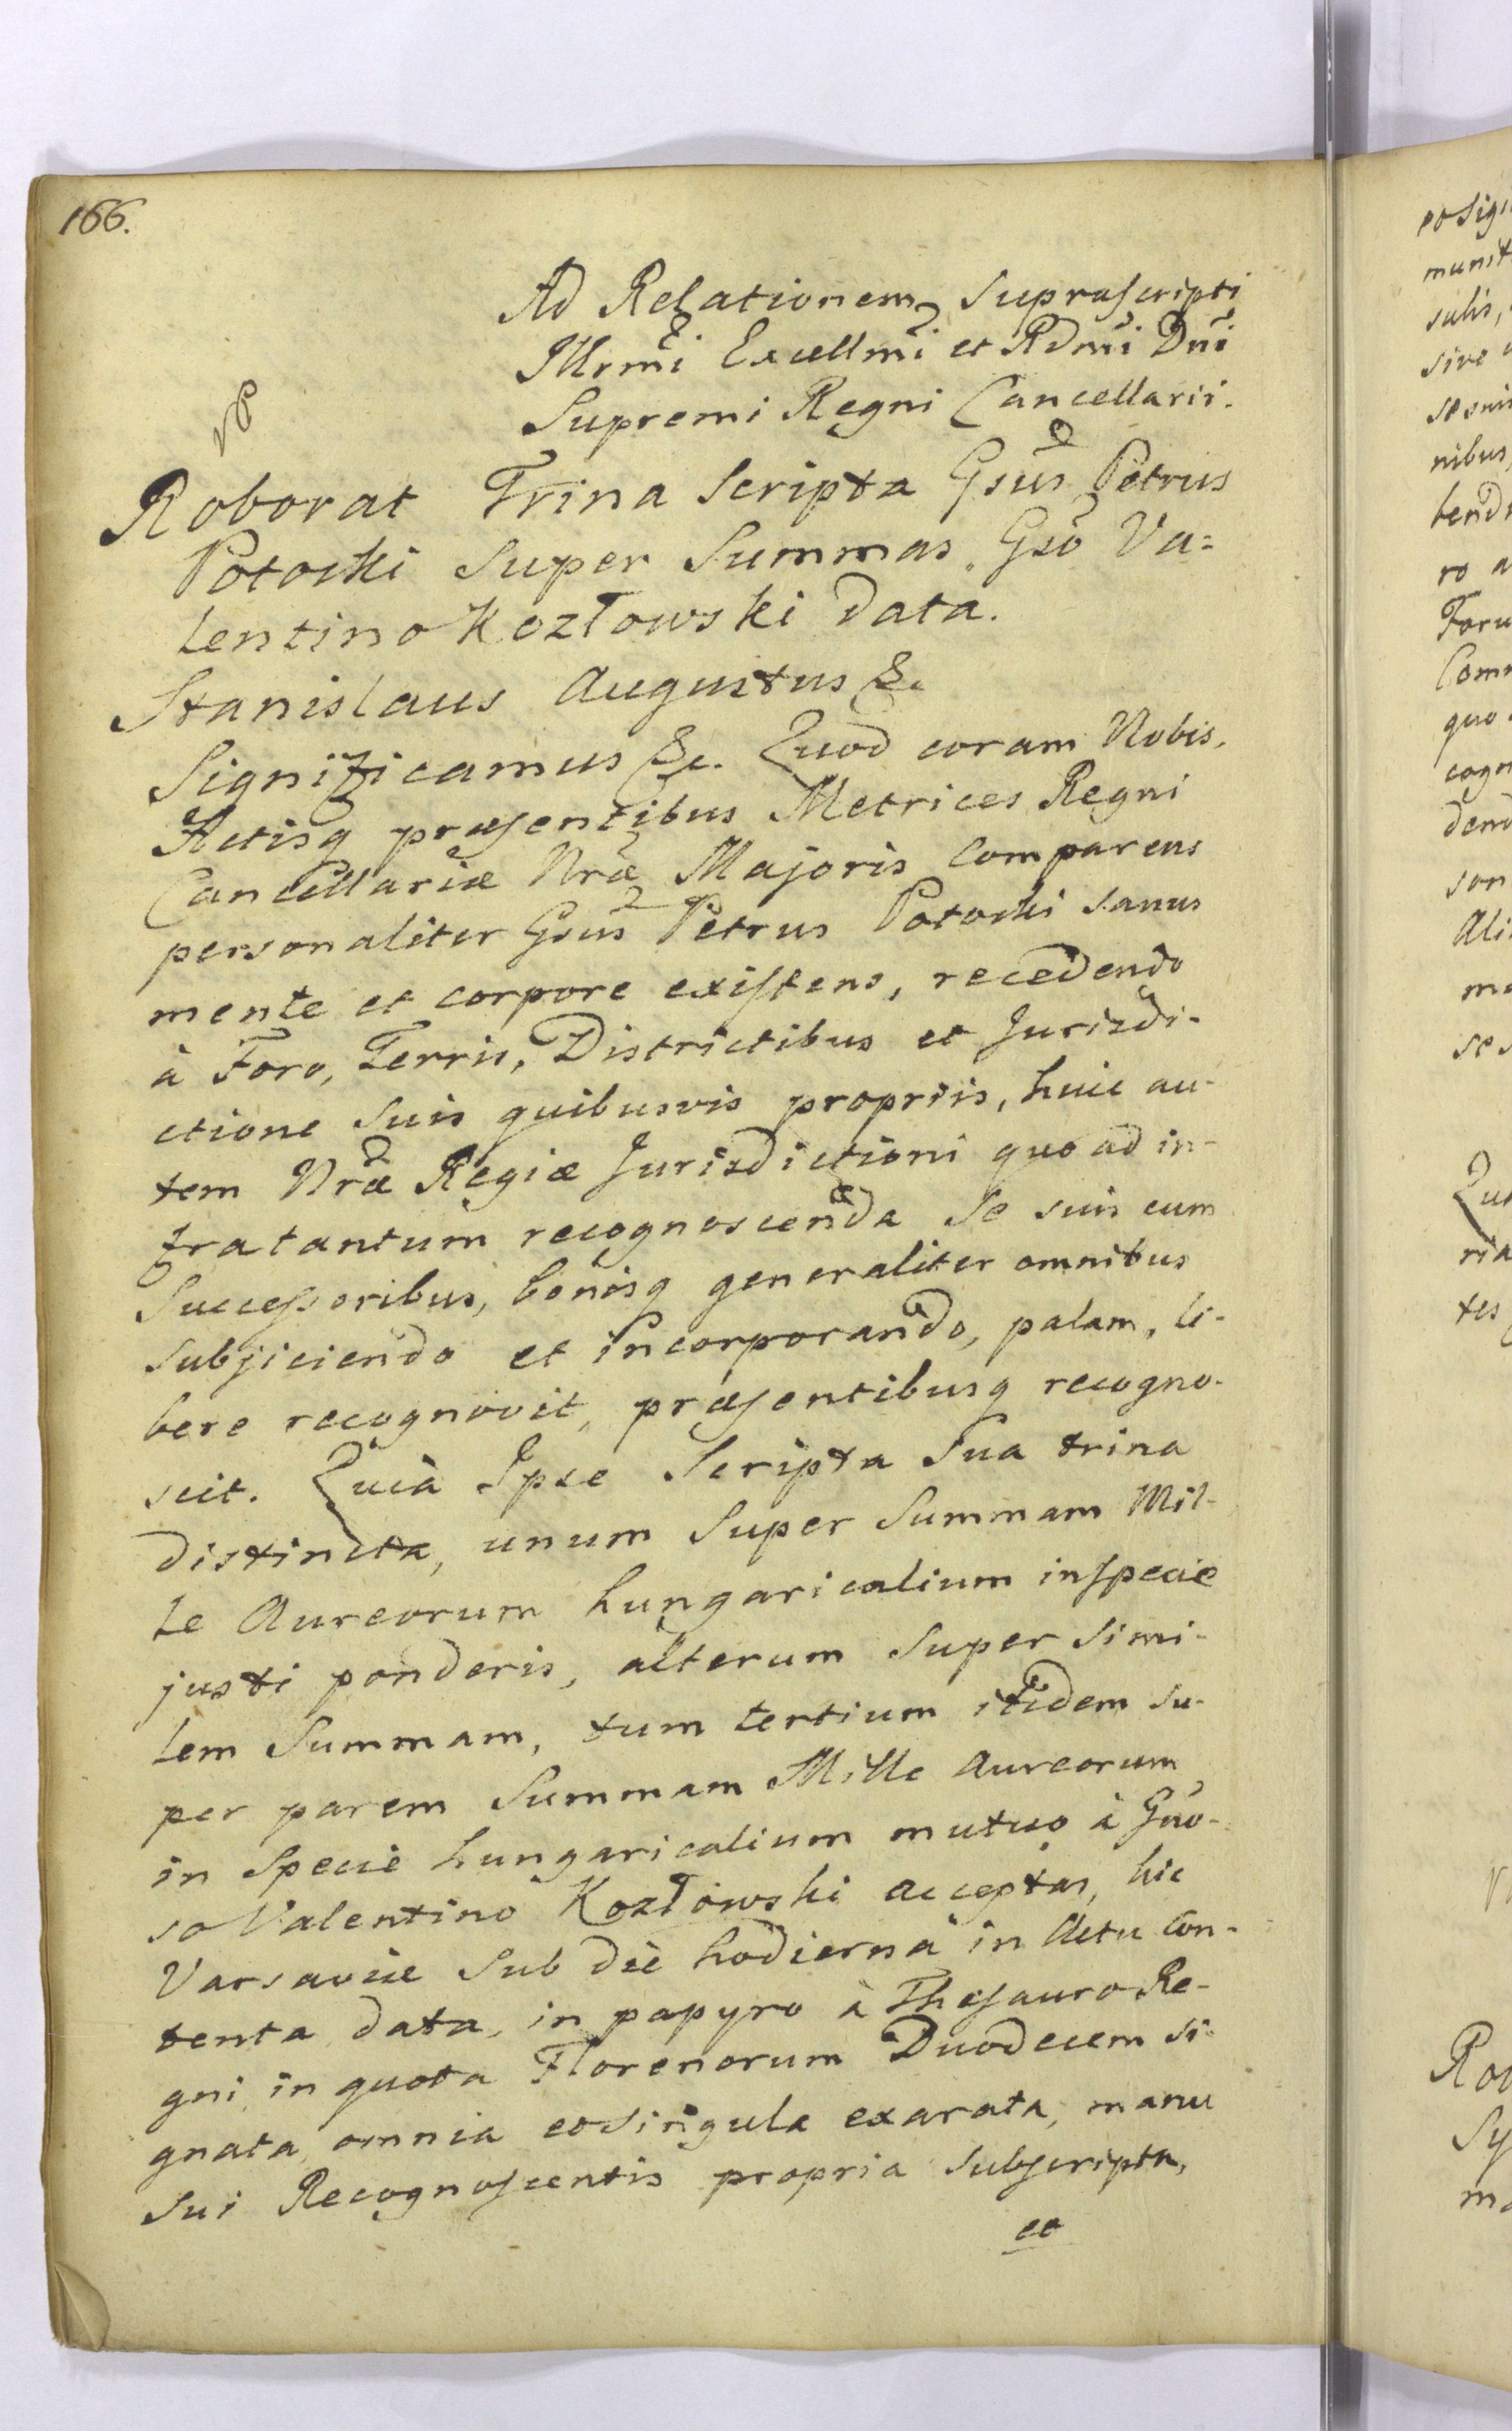 166.
Ad Relationem Supraſcripti
Illrmi Excellmi et Rdmi Dni
Supremi Regni Cancellarii.
Roborat Trina Scripta Gsus Petrus
Potocki Super Summas Gso Va=
lentino Kozłowski data.
Stanislaus Augustus &c
Significamus &c. Quod coram Nobis,
Actisq præſentibus Metrices Regni
Cancellariæ Nræ Majoris Comparens
personaliter Gsus Petrus Potocki sanus
mente et corpore exiſtens, recedendo
à Foro, Terris, Districtibus et Jurisdi-
ctione Suis quibusvis propriis, huic au-
tem Nræ Regiæ Jurisdictioni quo ad in-
fra tantum recognoscenda Se suis cum
Succeſsoribus, bonisq generaliter omnibus
Subjiciendo et incorporando, palam, li-
bere recognovit, præſentibusq recogno-
scit. Quià Ipse Scripta Sua trina
distincta, unum Super Summam Mil-
le Aureorum hungaricalium inſpecie
justi ponderis, alterum Super Simi-
lem Summam, tum tertium itidem Su-
per parem Summam Mille Aureorum
in Specie hungaricalium mutuo à Gno-
so Valentino Kozłowski acceptas, hic
Varsaviæ Sub die hodierna in Actu Con-
tenta data, in papyro à Theſauro Re-
gni in quota Florenorum Duodecem si-
gnata, omnia eosingula exarata, manu
Sui Recognoſcentis propria Subſcripta,
et